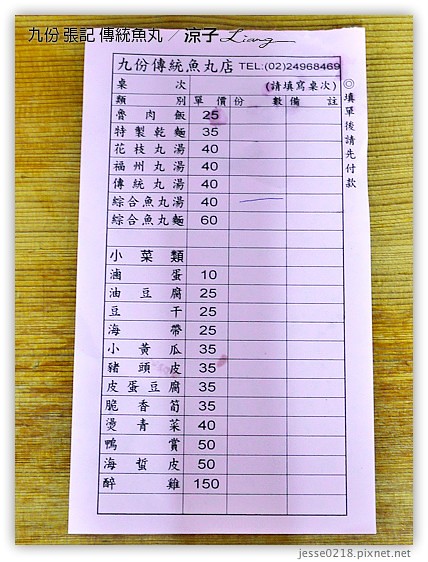 九份 張記 傳統魚丸 ／ 涼子 Liang
九份傳統魚丸店 TEL:(02)24968469
桌 次 (請填寫桌次)
類 別 單 價 份 數 備 註
魯肉飯 25
特製乾麵 35
花枝丸湯 40
福州丸湯 40
傳統丸湯 40
綜合魚丸湯 40
綜合魚丸麵 60
小菜類
滷蛋 10
油豆腐 25
豆干 25
海帶 25
小黃瓜 35
豬頭皮 35
皮蛋豆腐 35
脆香筍 35
燙青菜 40
鴨賞 50
海蜇皮 50
醉雞 150
◎填單後請先付款
jesse0218.pixnet.net